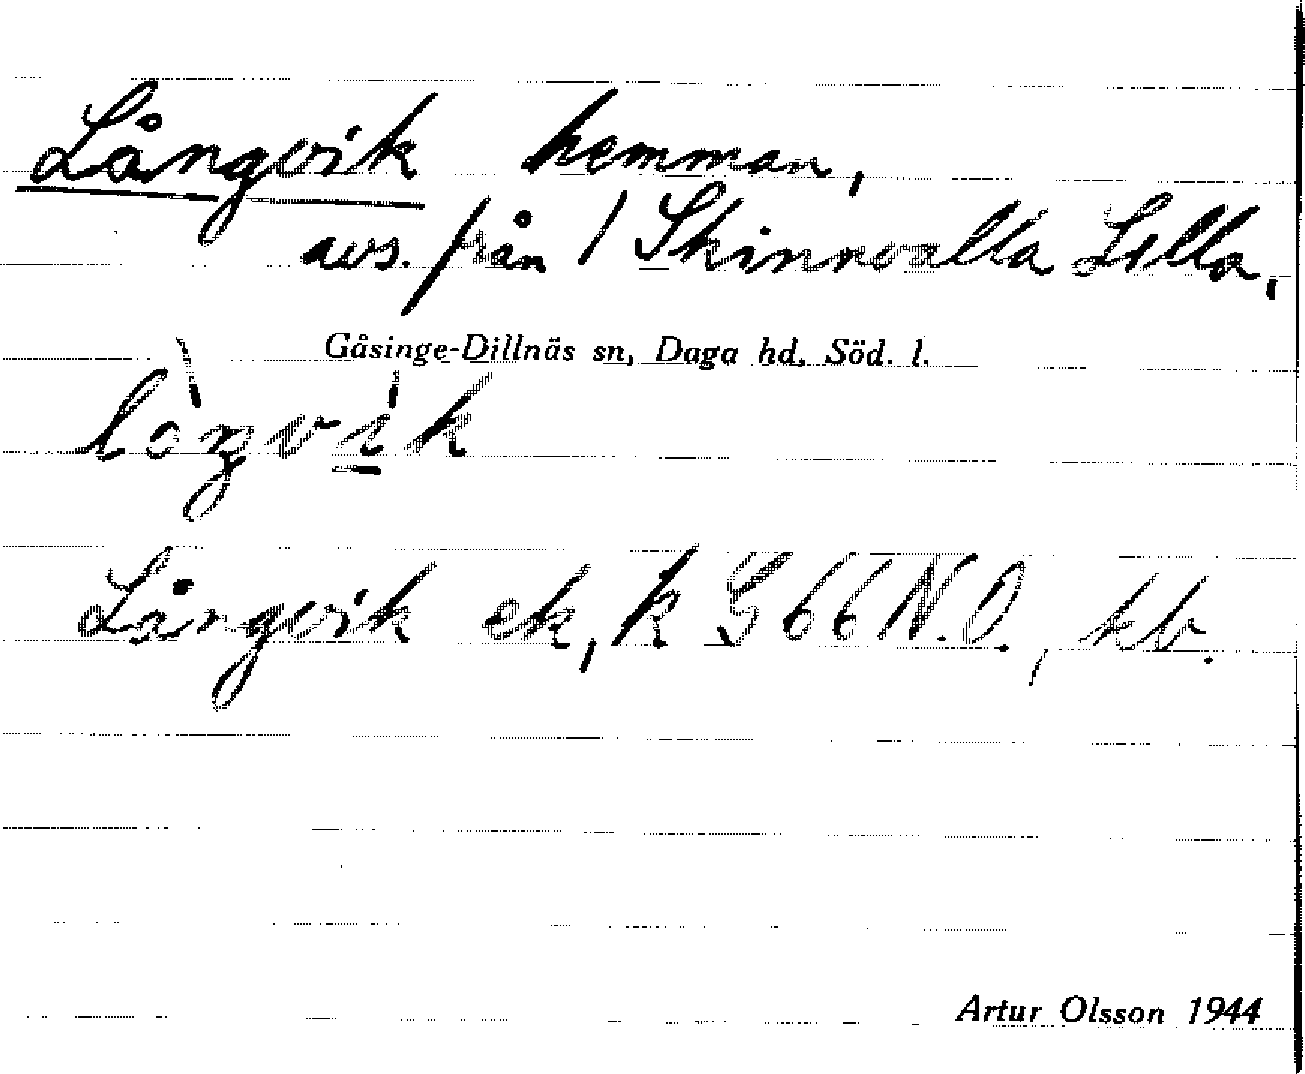 Långvik hemman,
avs. från 1 Skinnvalla Lilla,
Gåsinge-Dillnäs sn, Daga hd, Söd. l.
lòŋvík
Långvik ek, k G 66 N.O., kb.
Artur Olsson 1944